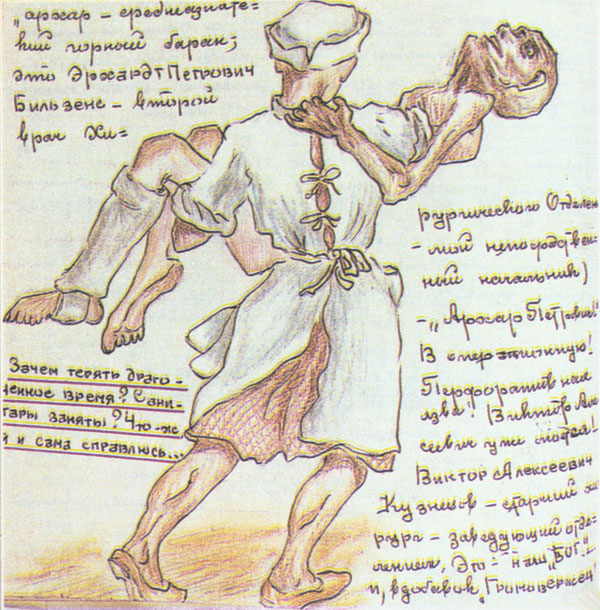 „архар – среднеазиате=
кий горный баран;
это Эрхардт Петрович
Бильзенс – второй
врач Хи=
рургического Отделен
– мой непосредствен
ный начальник)
– „Архар Петрович!
В операционную!
Перфоративная
язва! Виктор Але
сеевич уже моется!
Виктор Алексеевич
Кузнецов – старший хи
рург – заведующий отде-
лением, Это – наш „Бог"
и, вдобавок, „Громовержец!
Зачем терять драго-
ценное время? Сани-
тары заняты? Что-ж
й и сама справлюсь...